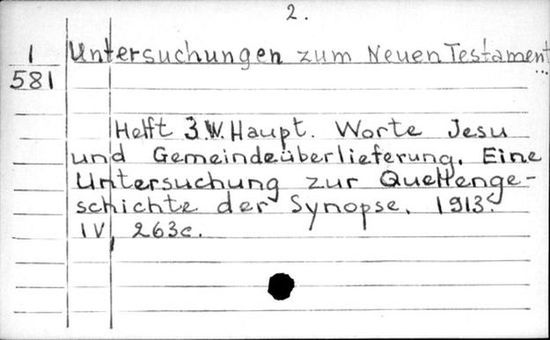 2.
1 Untersuchungen zum Neuen Testament
581 ...
Helft 3. W. Haupt. Worte Jesu
und Gemeindeüberlieferung. Eine
Untersuchung zur Quellenge-
schichte der Synopse. 1913.
IV, 263c.